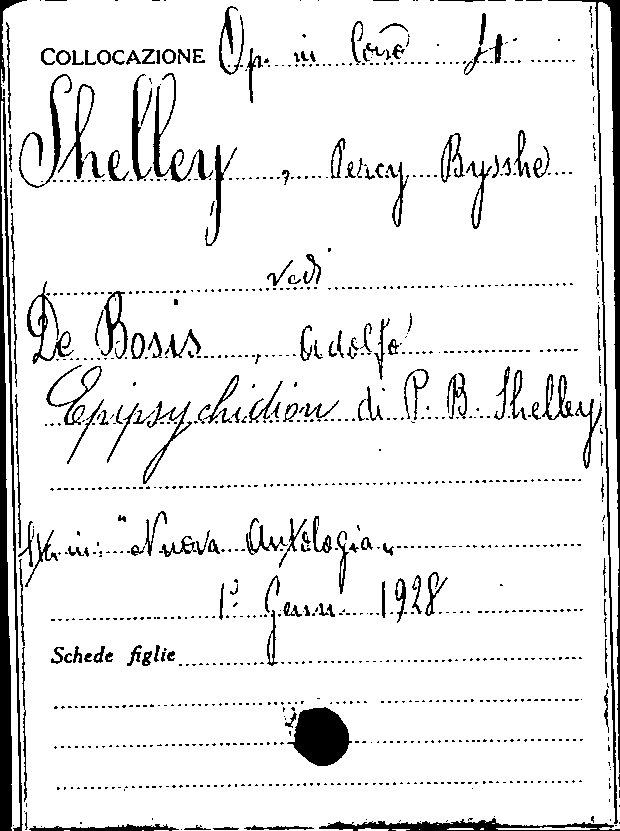 COLLOCAZIONE Op. in Corso
Shelley, Percy Bysshe
vedi
De Bosis, Adolfo
Epipsychidion di P. B. Shelley
in: "Nuova Antologia"
1º Genn. 1928
Schede figlie